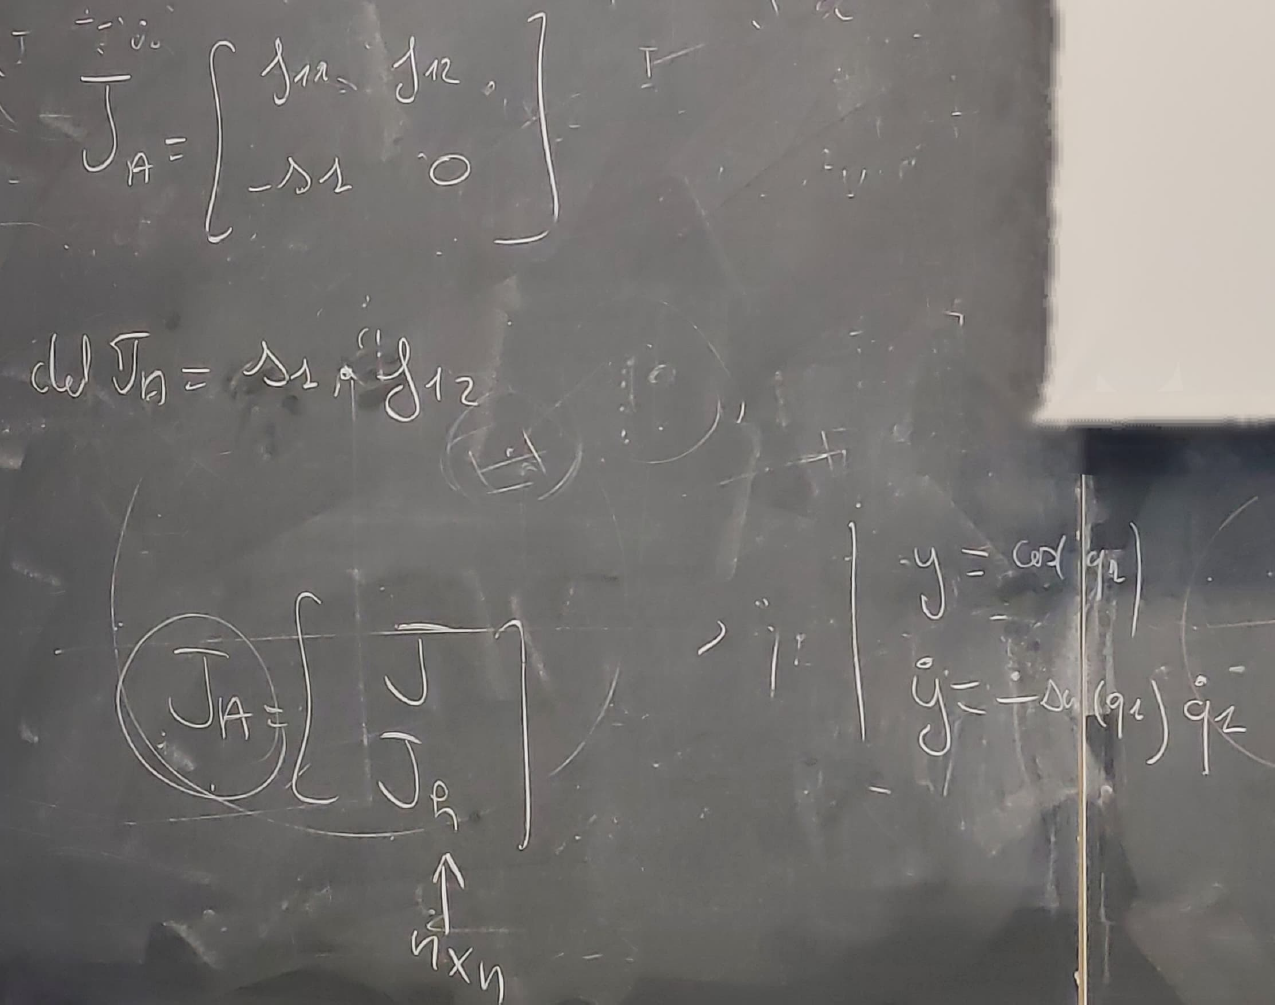 J_A = [ J11 J12
-s1 0 ]
det J_A = s1 · J12
J_A = [ J
J_R ]
↑
n×n
y = cos(q1)
ẏ = -sin(q1) q̇1